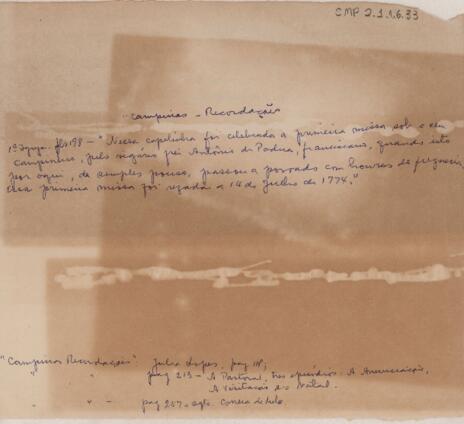 CMP 2.1.1.6.33
"Campinas - Recordação
1º Grupo. fls 198 - "Nessa capelinha foi celebrada a primeira missa sob o céu
campineiro, pelo vigário frei Antônio de Padua, franciscano, quando isto
por aqui, de simples pouso, passou a povoado com honras de freguesia,
essa primeira missa foi rezada a 14 de Julho de 1774."
"Campinas Recordação" Julia Lopes, pag 118;
" " pag 213 - A Pastoral, tres episódios: A Anunciação,
A Visitação e o Natal.
" " - pag 257.